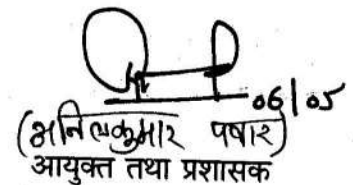 06/05
(अनिलकुमार पवार)
आयुक्त तथा प्रशासक